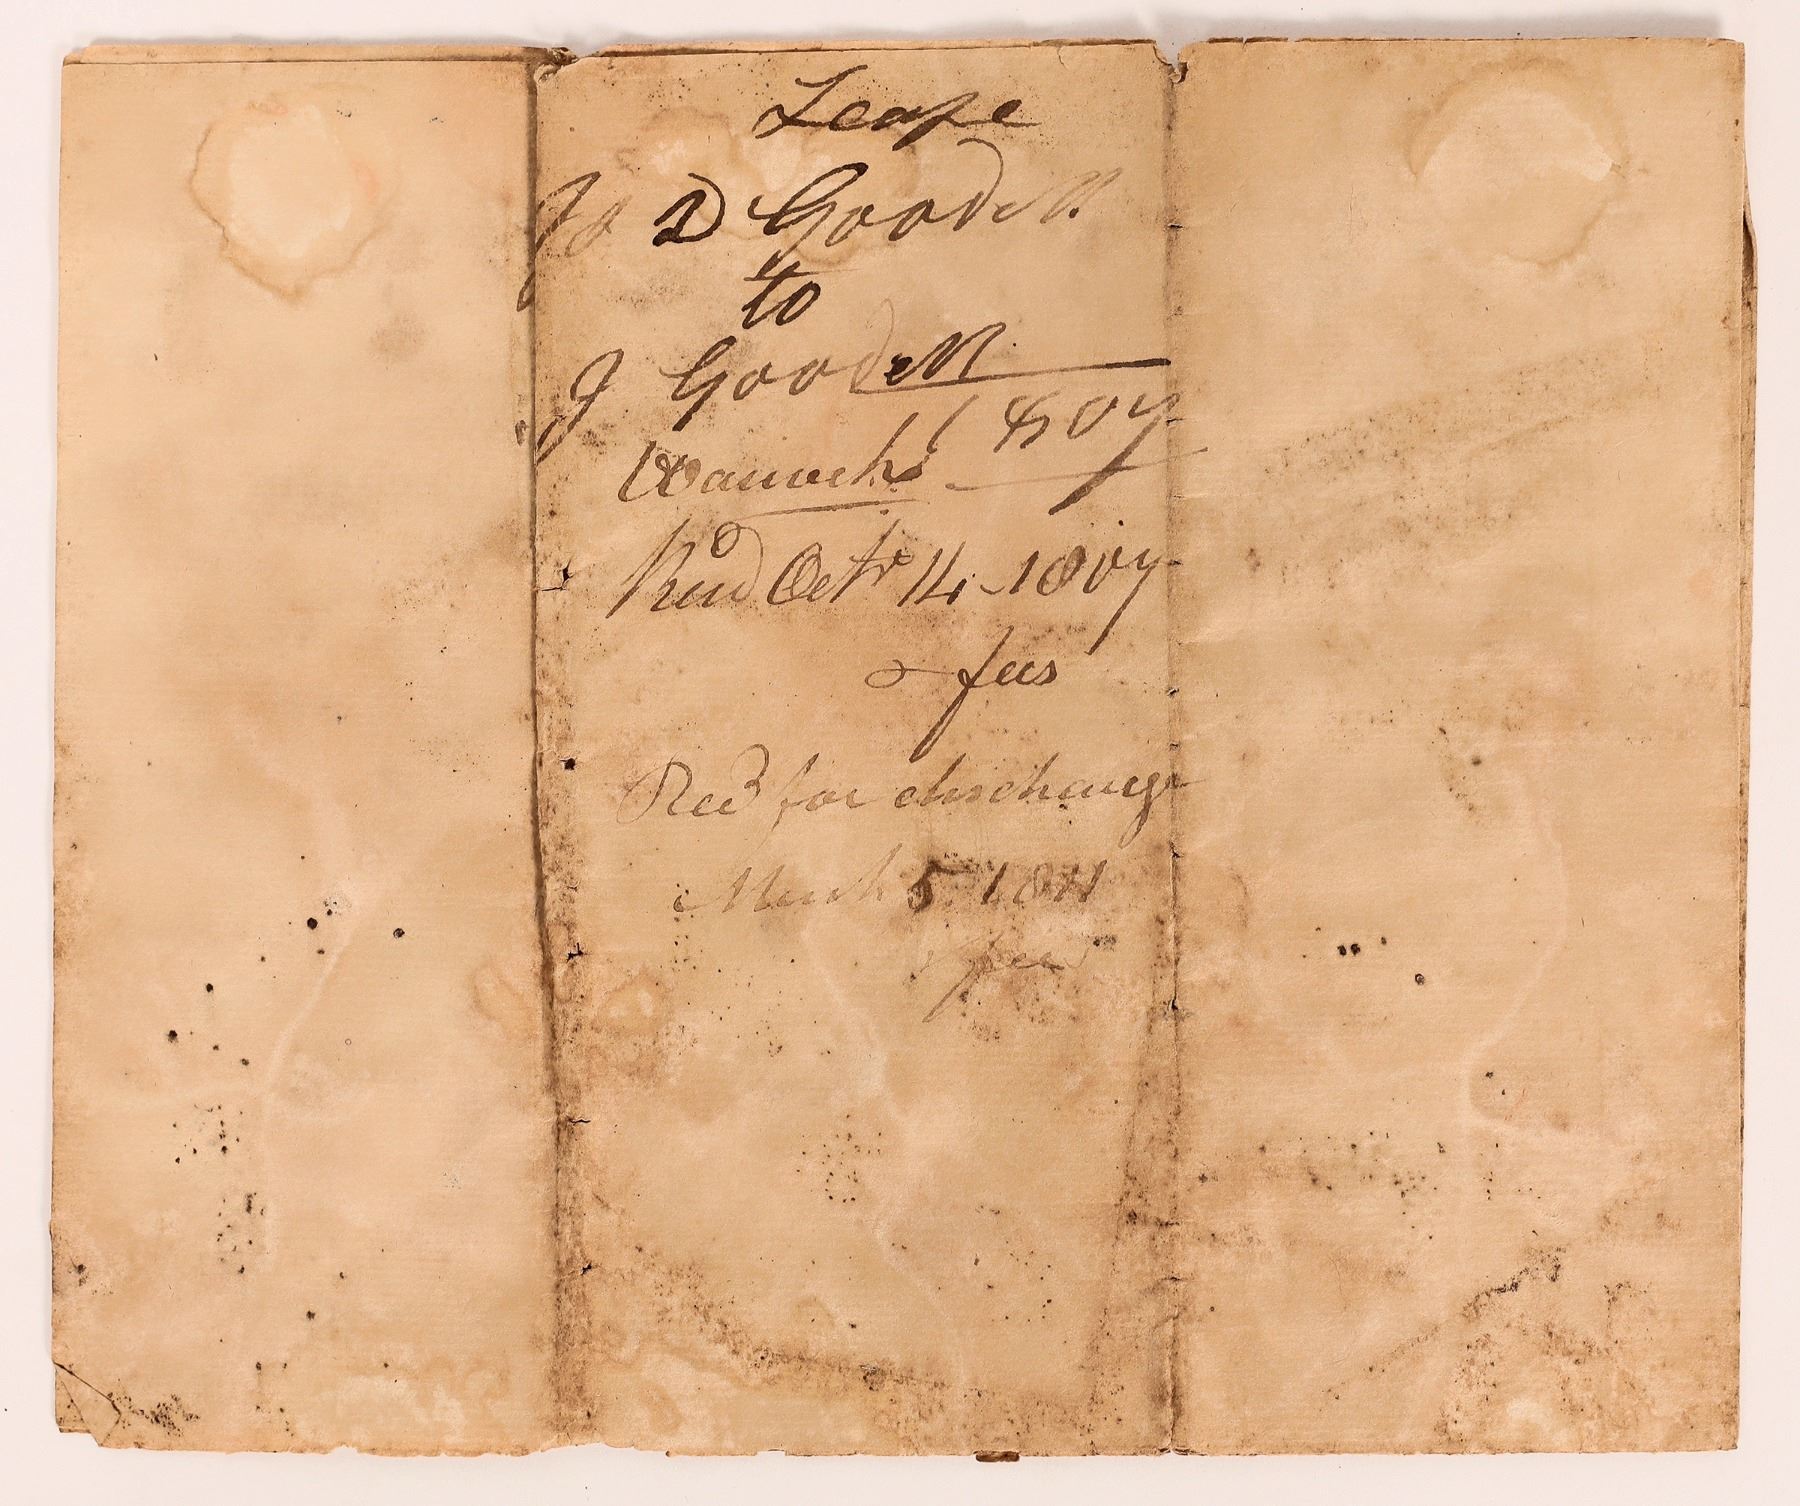 Lease
Js D Goodell
to
J Goodell
1807
Recd Octr 14 - 1807
& fees
Recd for discharge
March 5 1811
& fees